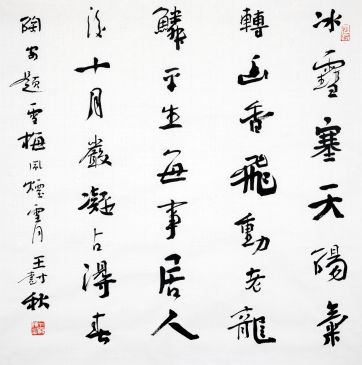 冰雪塞天陽氣
轉幽香飛動老龍
鱗平生每事居人
後十月嚴凝占得春
陶安題雪梅風煙雪月 王 秋